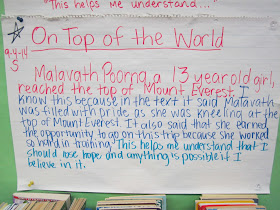 "This helps me understand..."
9.4.14
5
On Top of the World
Malavath Poorna, a 13 year old girl,
reached the top of Mount Everest. I
know this because in the text it said Malavath
was filled with pride as she was kneeling at the
top of Mount Everest. It also said that she earned
the opportunity to go on this trip because she worked
so hard in training. This helps me understand that I
should lose hope and anything is possible if I
believe in it.